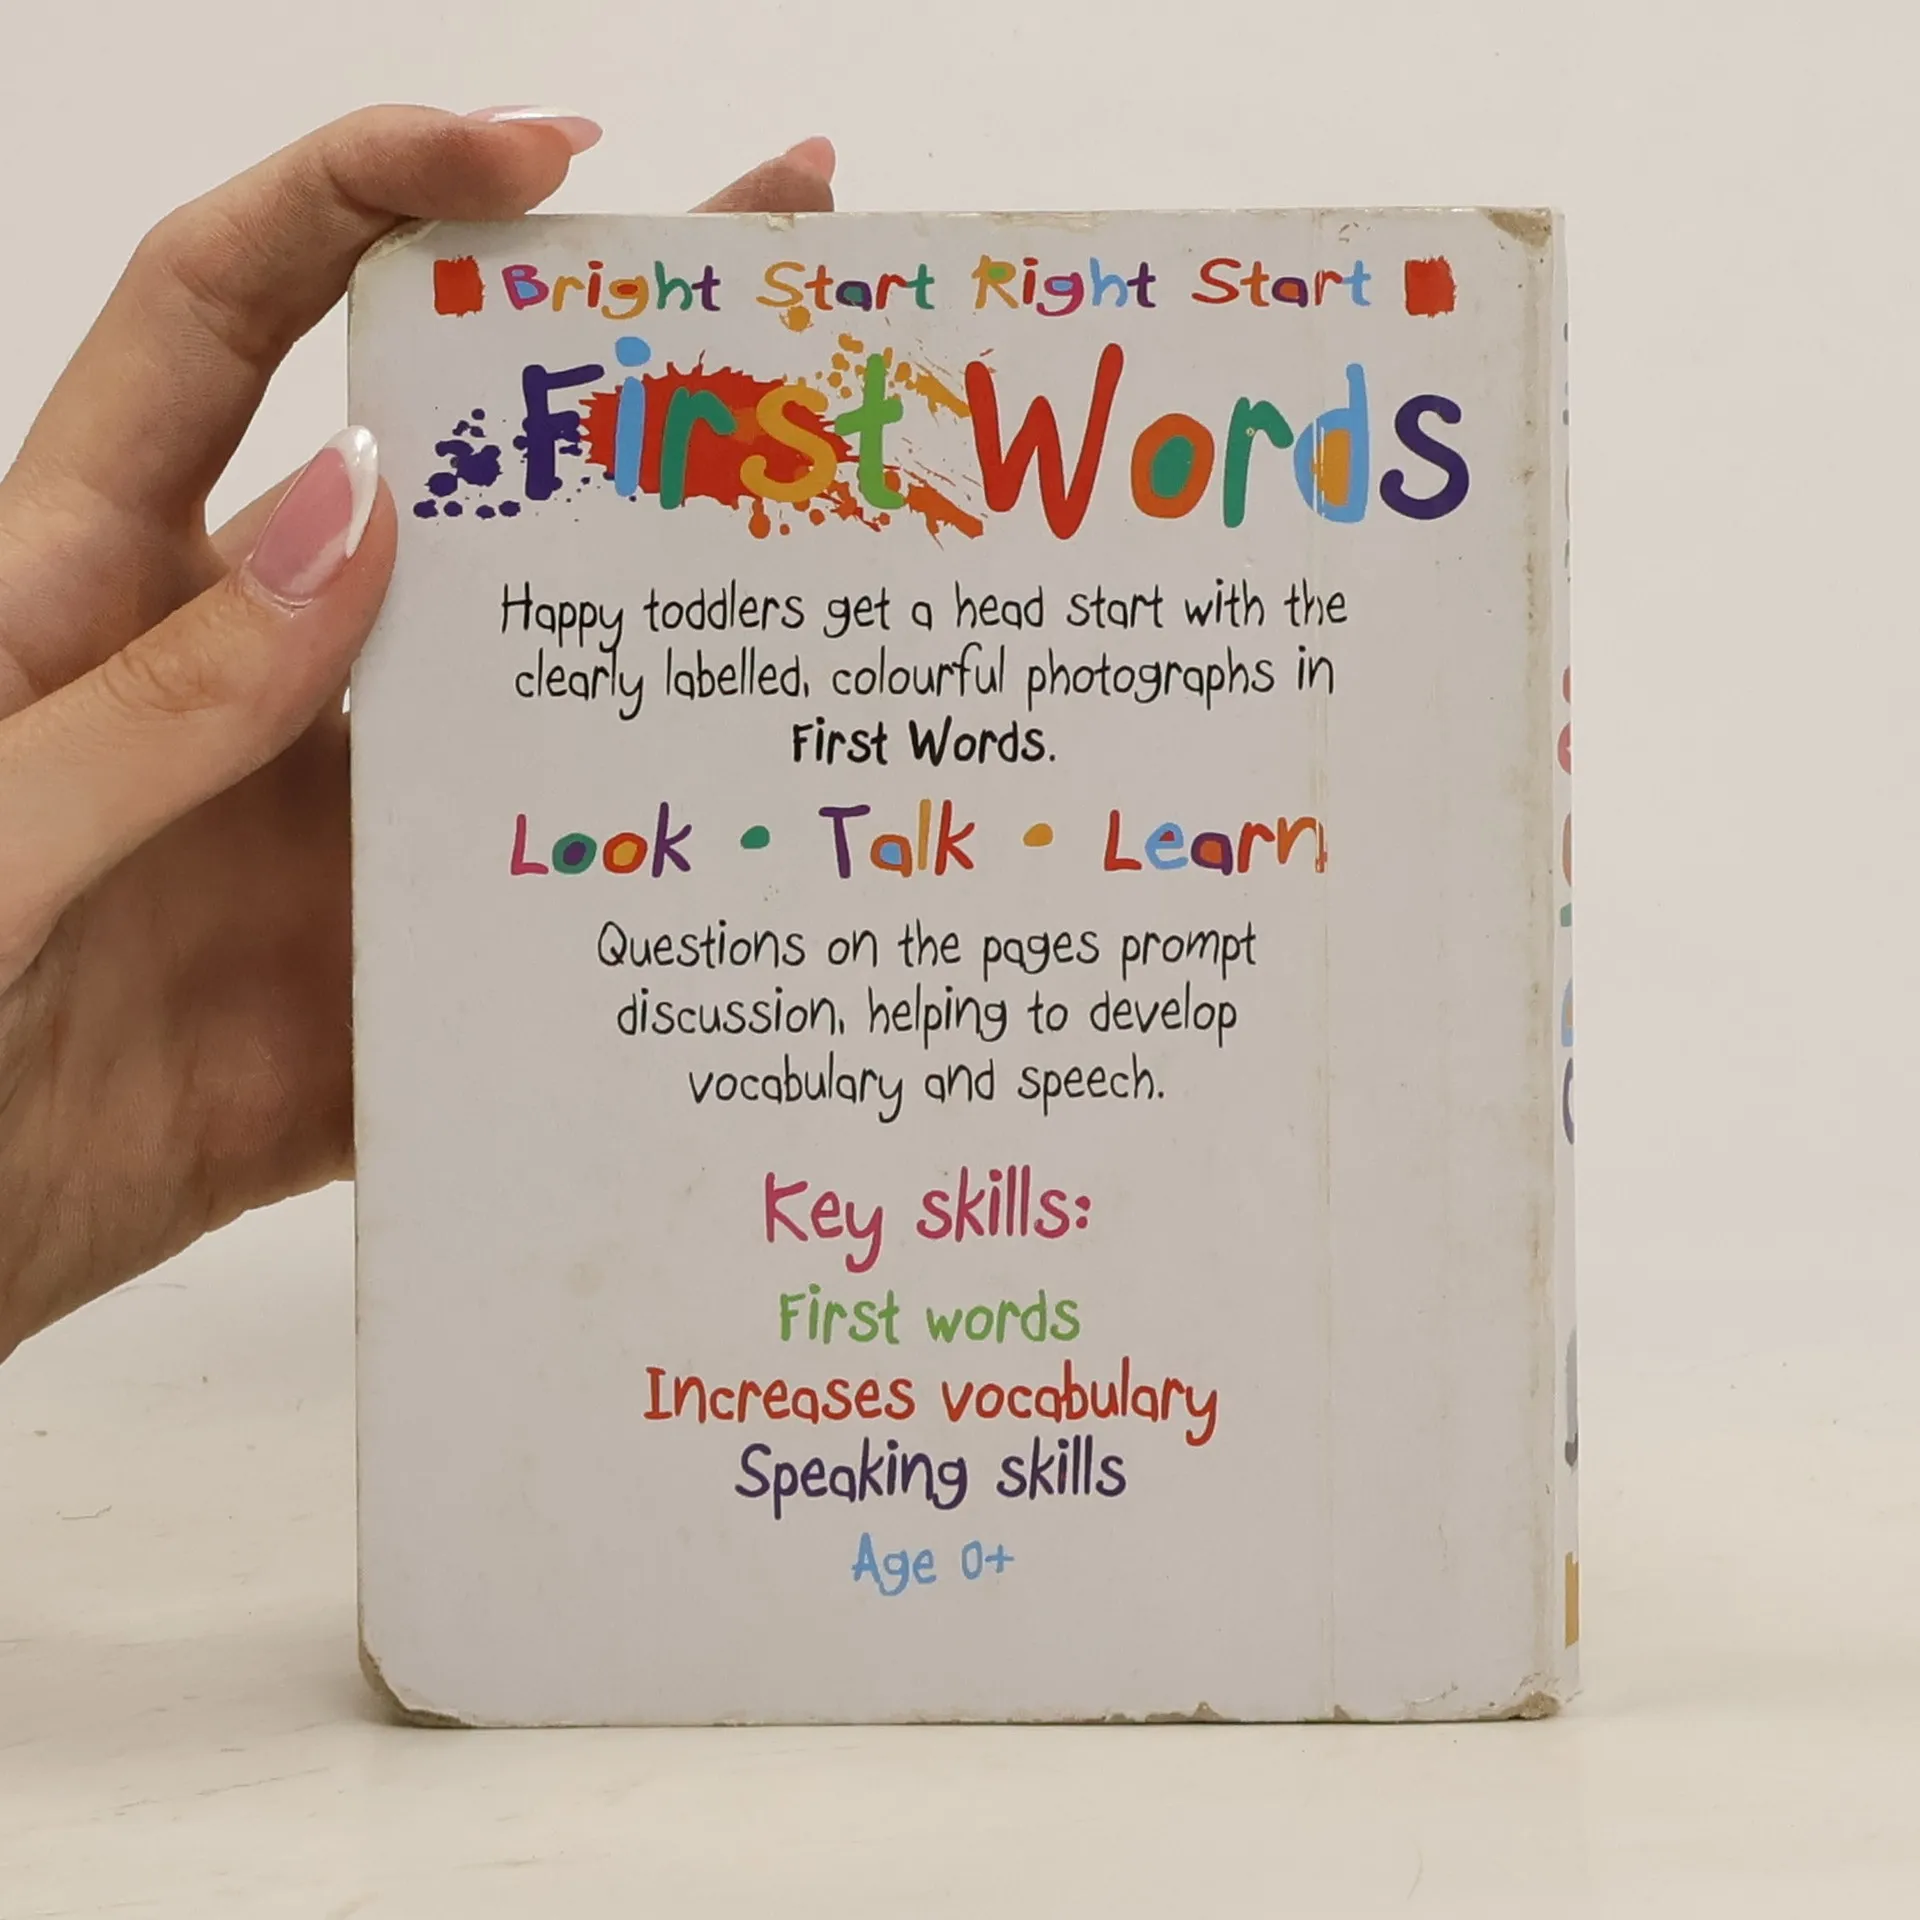 Bright Start Right Start
First Words
Happy toddlers get a head start with the
clearly labelled, colourful photographs in
First Words.
Look • Talk • Learn
Questions on the pages prompt
discussion, helping to develop
vocabulary and speech.
Key skills:
First words
Increases vocabulary
Speaking skills
Age 0+